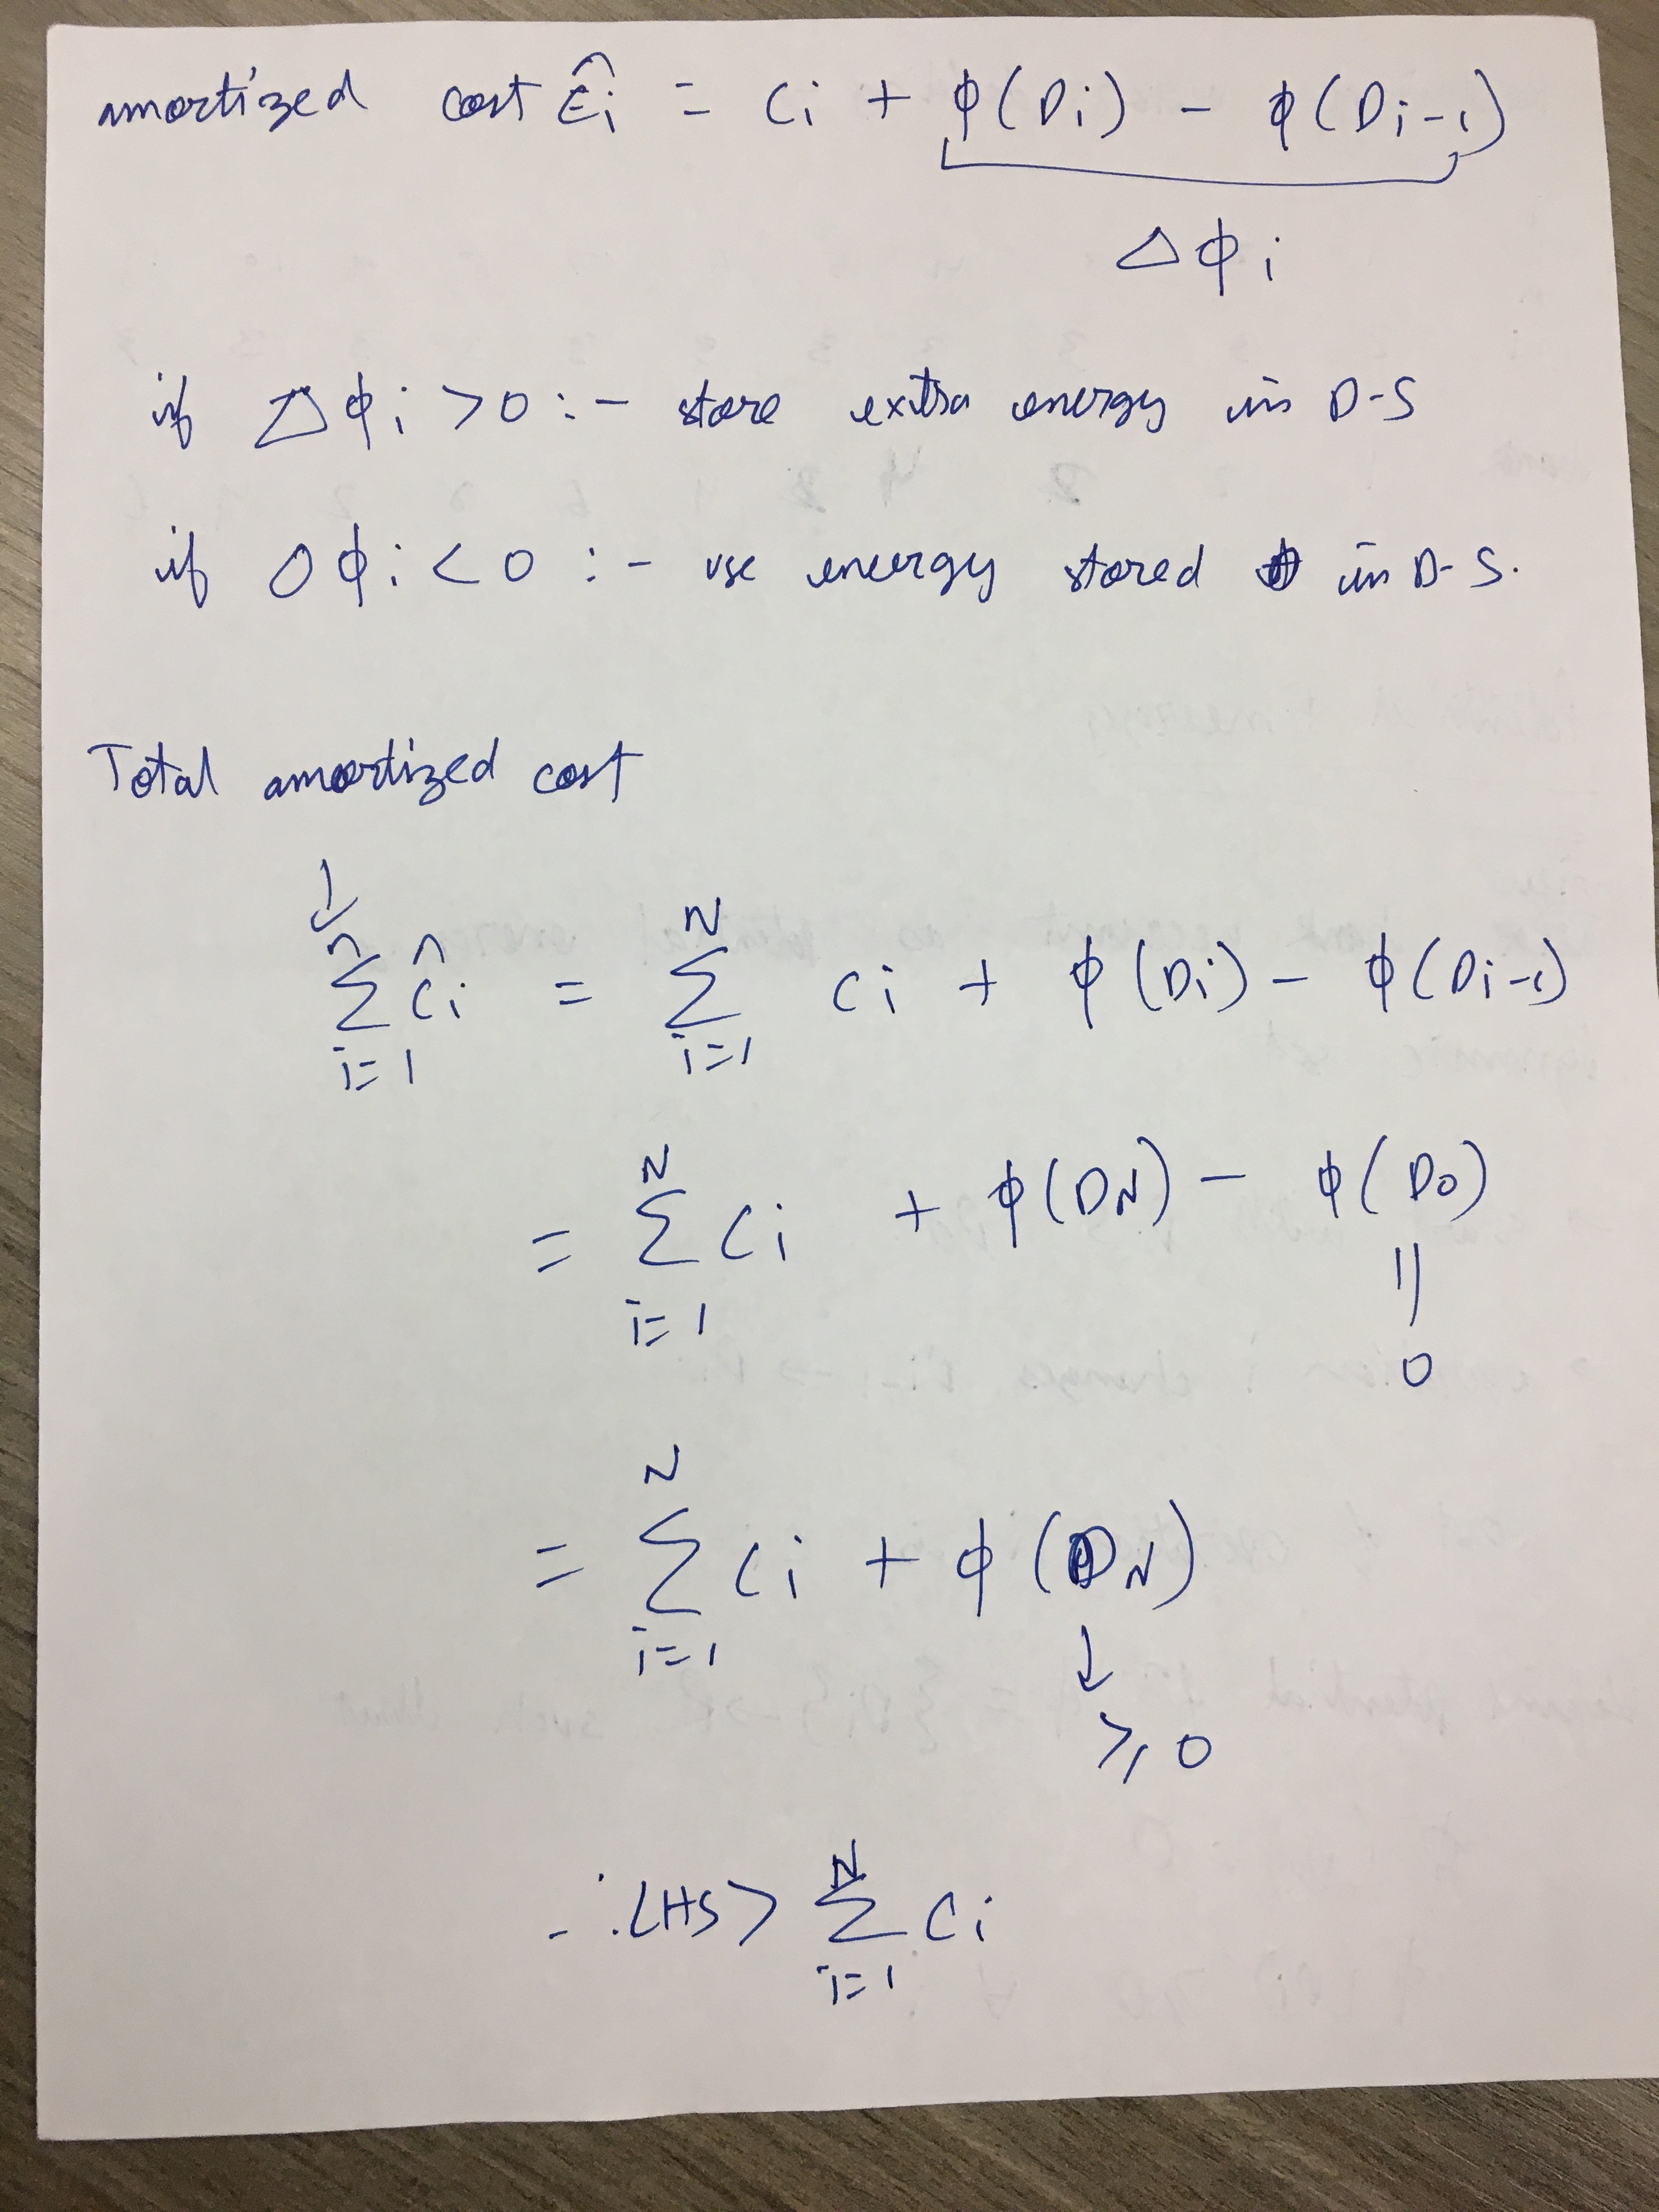 amortized cost ĉi = ci + ϕ(Di) - ϕ(Di-1)
Δϕi
if Δϕi > 0 :- store extra energy in D-S
if Δϕi < 0 :- use energy stored in D-S.
Total amortized cost
↓
n
∑ ĉi = ∑ ci + ϕ(Di) - ϕ(Di-1)
i=1
N
i=1
N
= ∑ ci + ϕ(DN) - ϕ(D0)
i=1
||
0
N
= ∑ ci + ϕ(DN)
i=1
↓
≥ 0
N
∴ LHS > ∑ ci
i=1